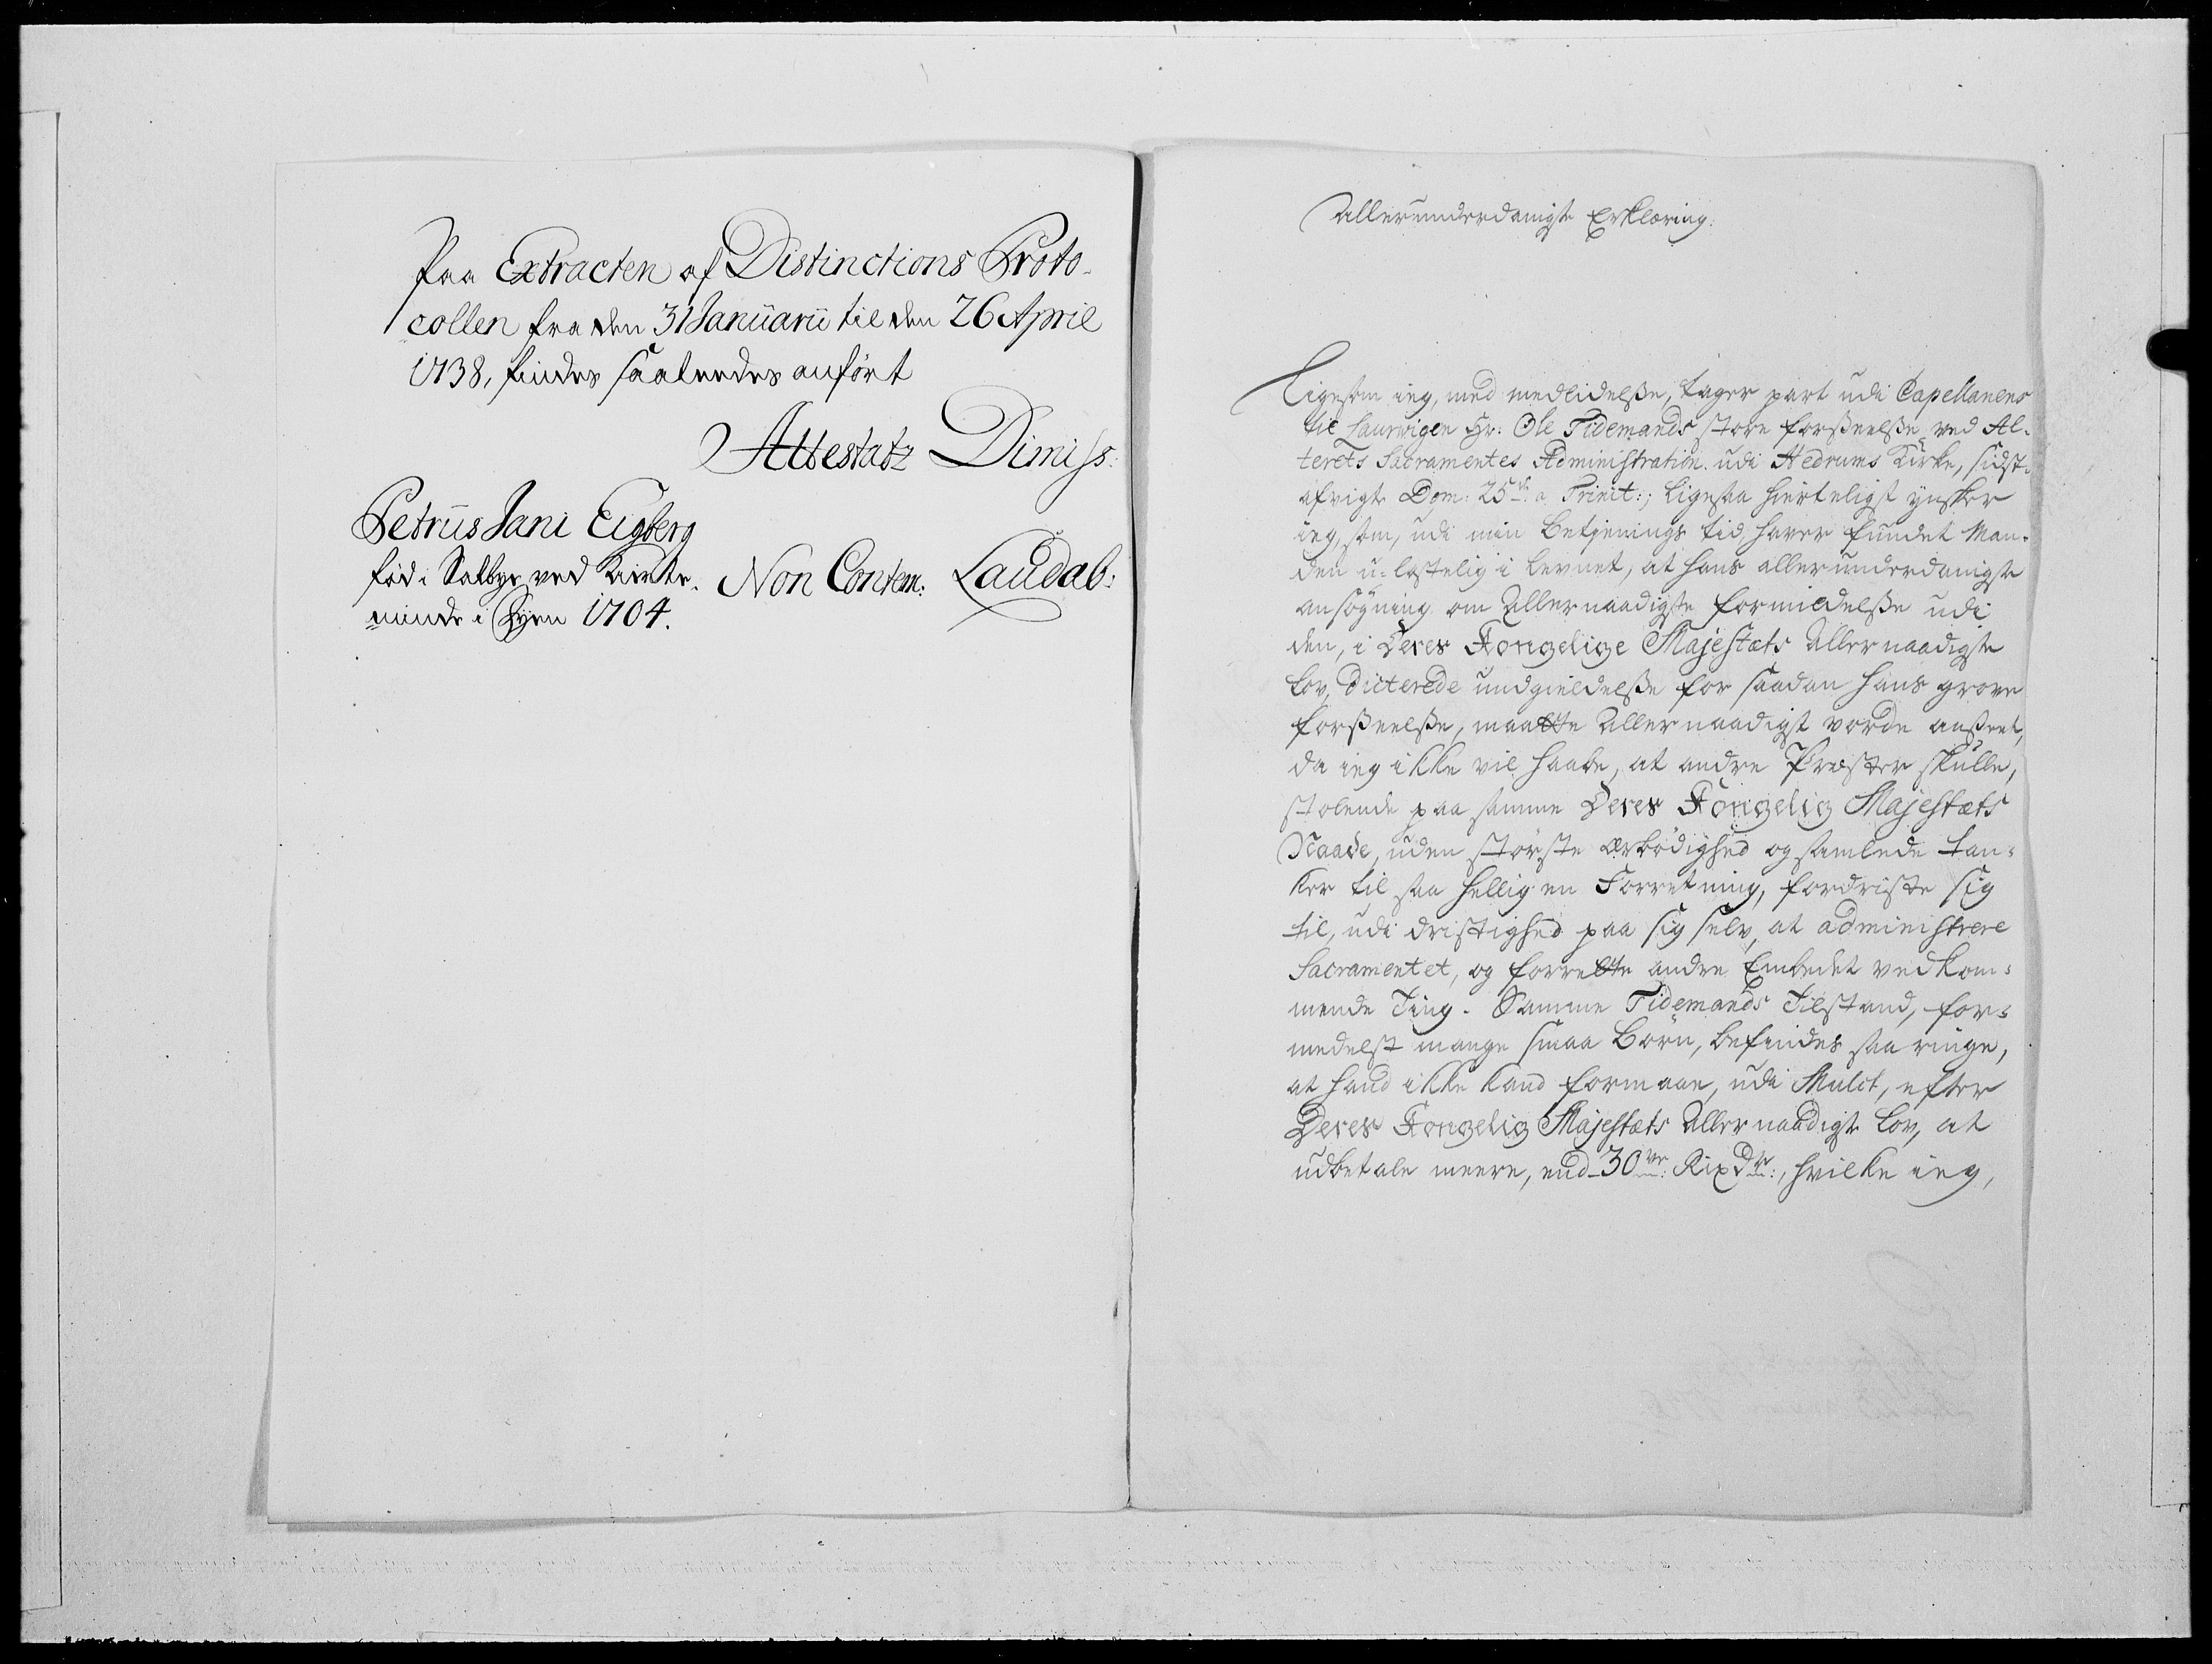 Paa Extracten af Distinctions Proto-
collen fra den 31 Januarii til den 26 April
1738, findes saaledes anført
Attestatz Dimiss:
Petrus Jani Eigberg
fød i Salbye ved Kierte-
minde i Fyen 1704.
Non Contem: Laudab:
Allerunderdanigste Erklæring:
Ligesom ieg, med medlidelsse, tager part udi Capellanens
til Laurvigen Hr: Ole Tidemands store forsseelsse ved Al-
terets Sacramentes Administration udi Hedrums Kirke, sidst-
afvigte Dom: 25de a Trinit:; ligesaa hierteligst ynsker
ieg, som, udi min betjenings tid, haver fundet Man-
den u-lastelig i levnet, at hans allerunderdanigste
ansøgning om Allernaadigste formildelsse udi
den, i Deres Kongelige Majestæts Allernaadigste
Lov, dicterede undgieldelsse for saadan hans grove
forsseelsse, maatte Allernaadigst vorde ansseet,
da ieg ikke vil haabe, at andre Præster skulle,
stolende paa samme Deres Kongelig Majestæts
Naade, uden største ærbødighed og samlede tan-
ker til saa hellig en Forretning, fordriste sig
til, udi dristighed paa sig selv, at administrere
Sacramentet, og forrette andre Embedet vedkom-
mende Ting. Samme Tidemands Tilstand, for-
medelst mange smaa Børn, befindes saa ringe,
at hand ikke kand formaae, udi Mulct, efter
Deres Kongelig Majestæts Allernaadigste Lov, at
udbetale meere, end 30ve: Rixdr:, hvilke ieg,